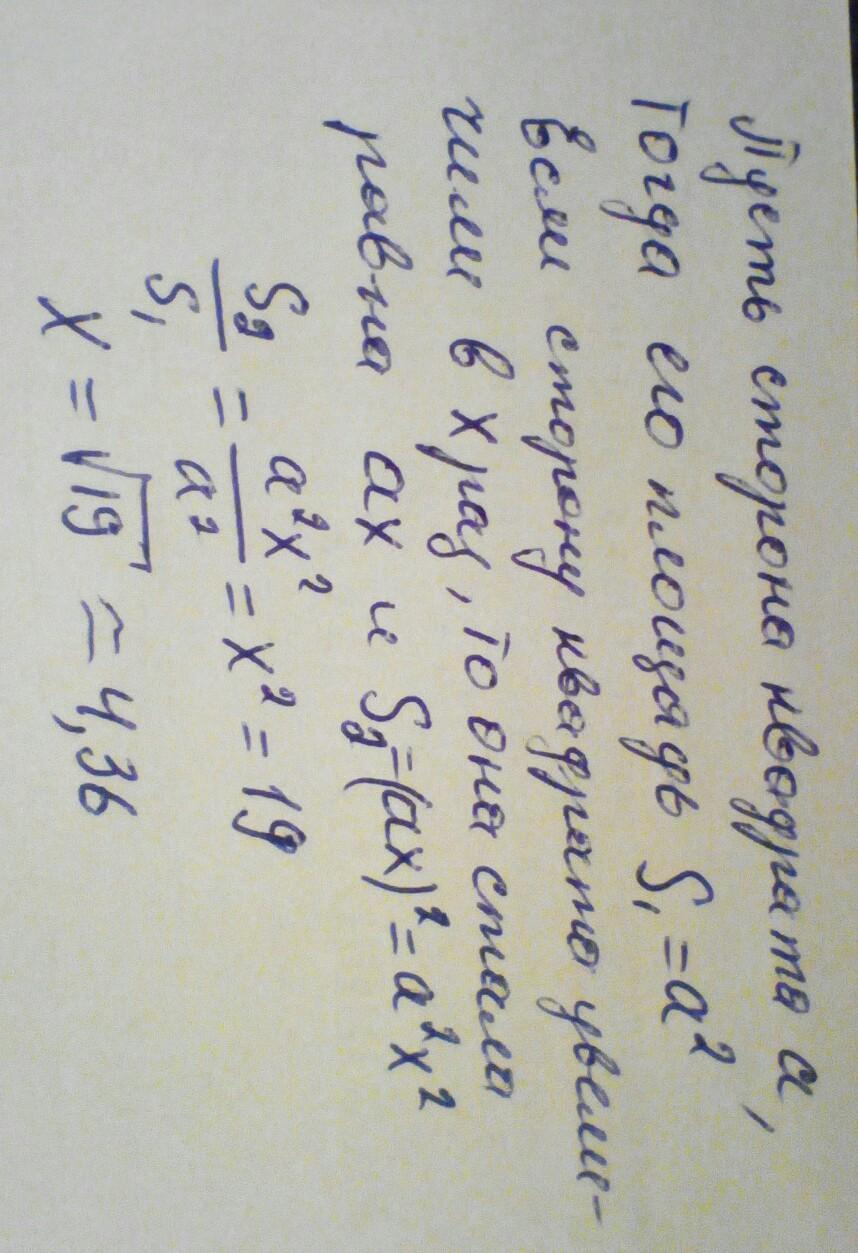 Пусть сторона квадрата a,
Тогда его площадь S₁ = a²
Если сторону квадрата увели-
чили в x раз, то она стала
равна ax и S₂ = (ax)² = a²x²
S₂/S₁ = a²x²/a² = x² = 19
x = √19 ≃ 4,36